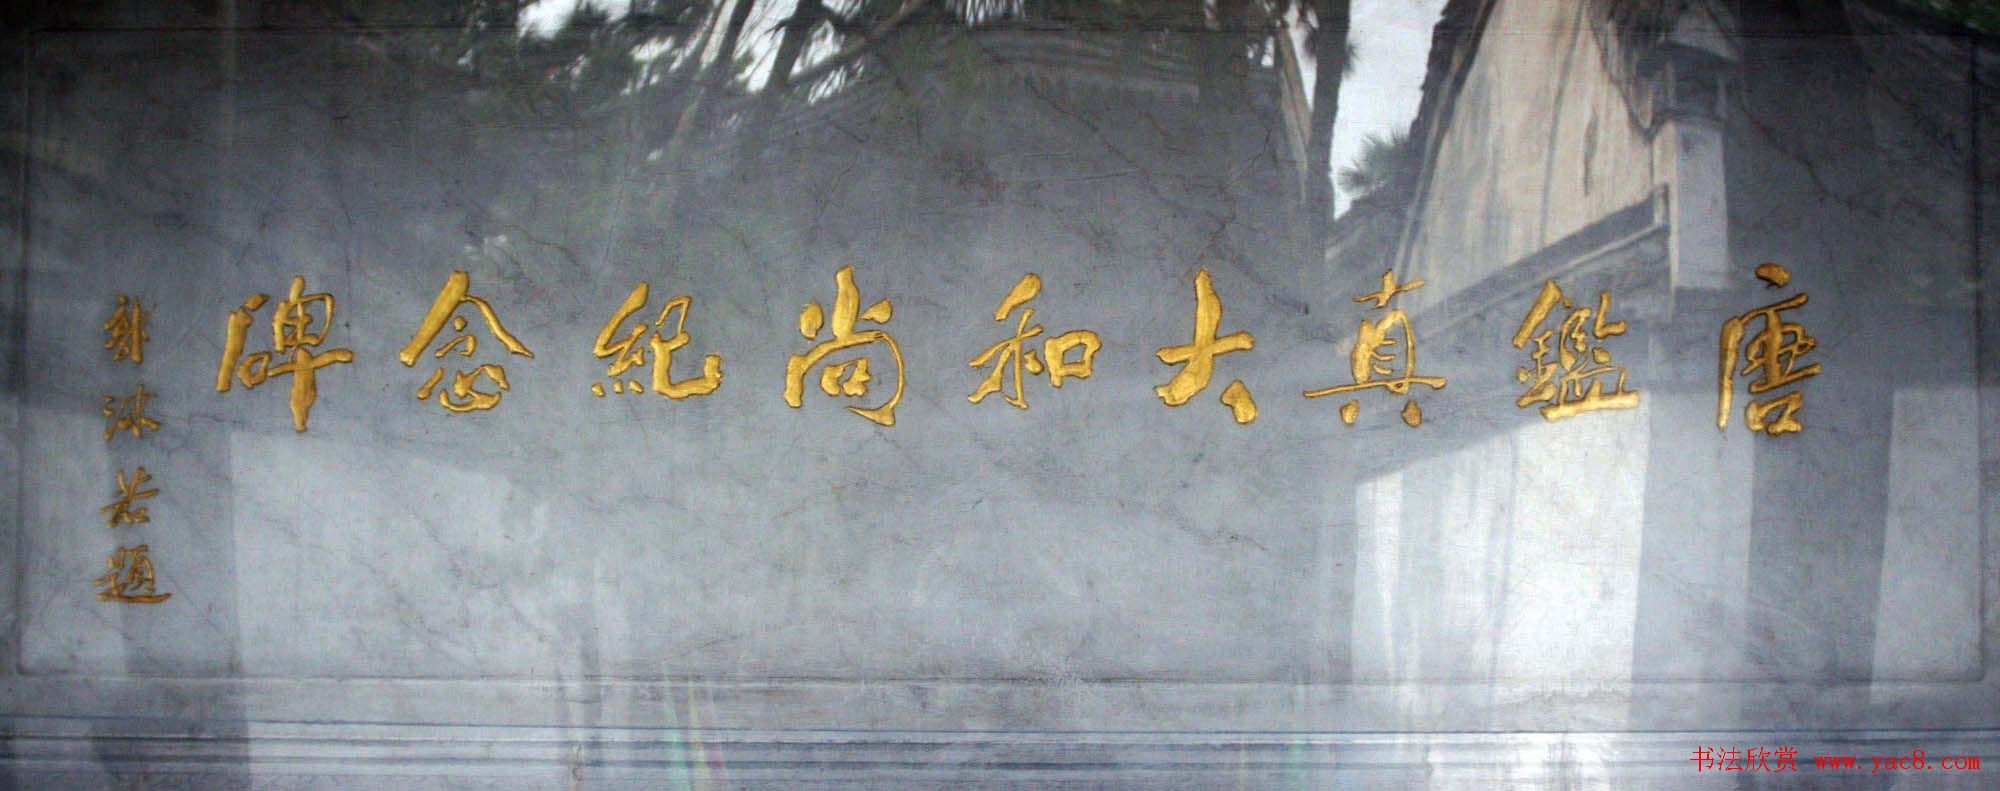 唐鑑真大和尚紀念碑
郭沫若題
书法欣赏 www.yac8.com